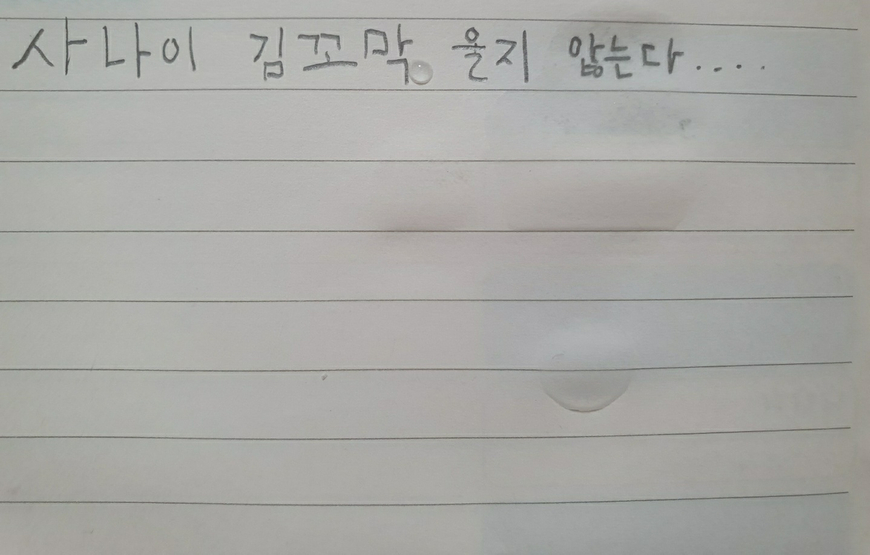 사나이 김꼬막 울지 않는다....